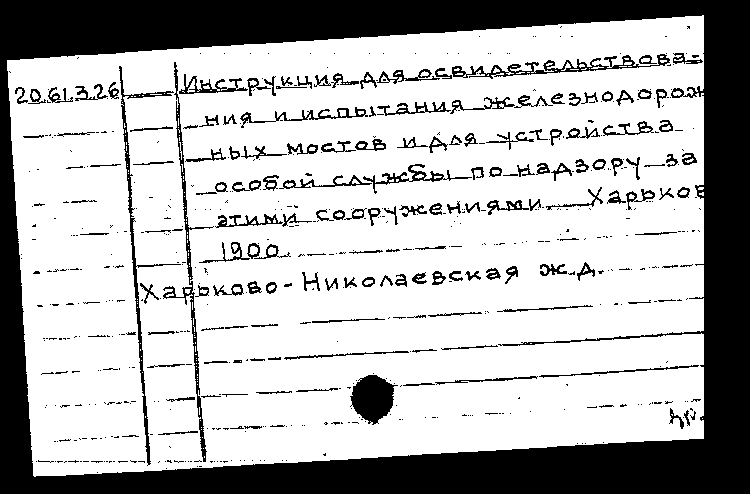 20.61.3.26 Инструкция для освидетельствова-
ния и испытания железнодорож
ных мостов и для устройства
особой службы по надзору за
этими сооружениями. Харьков
1900.
Харьково-Николаевская ж.д.